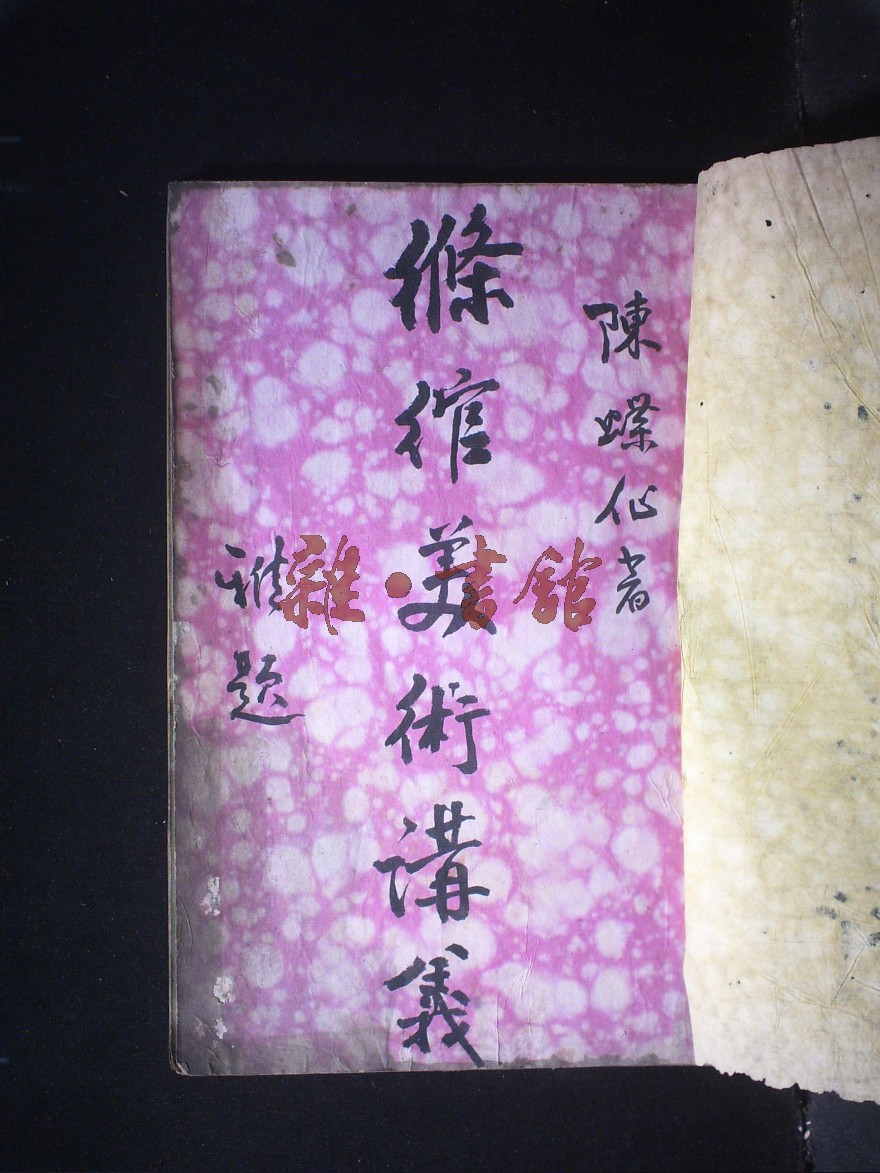 陳蝶仙著
縧綰美術講義
雅題
雜·書館